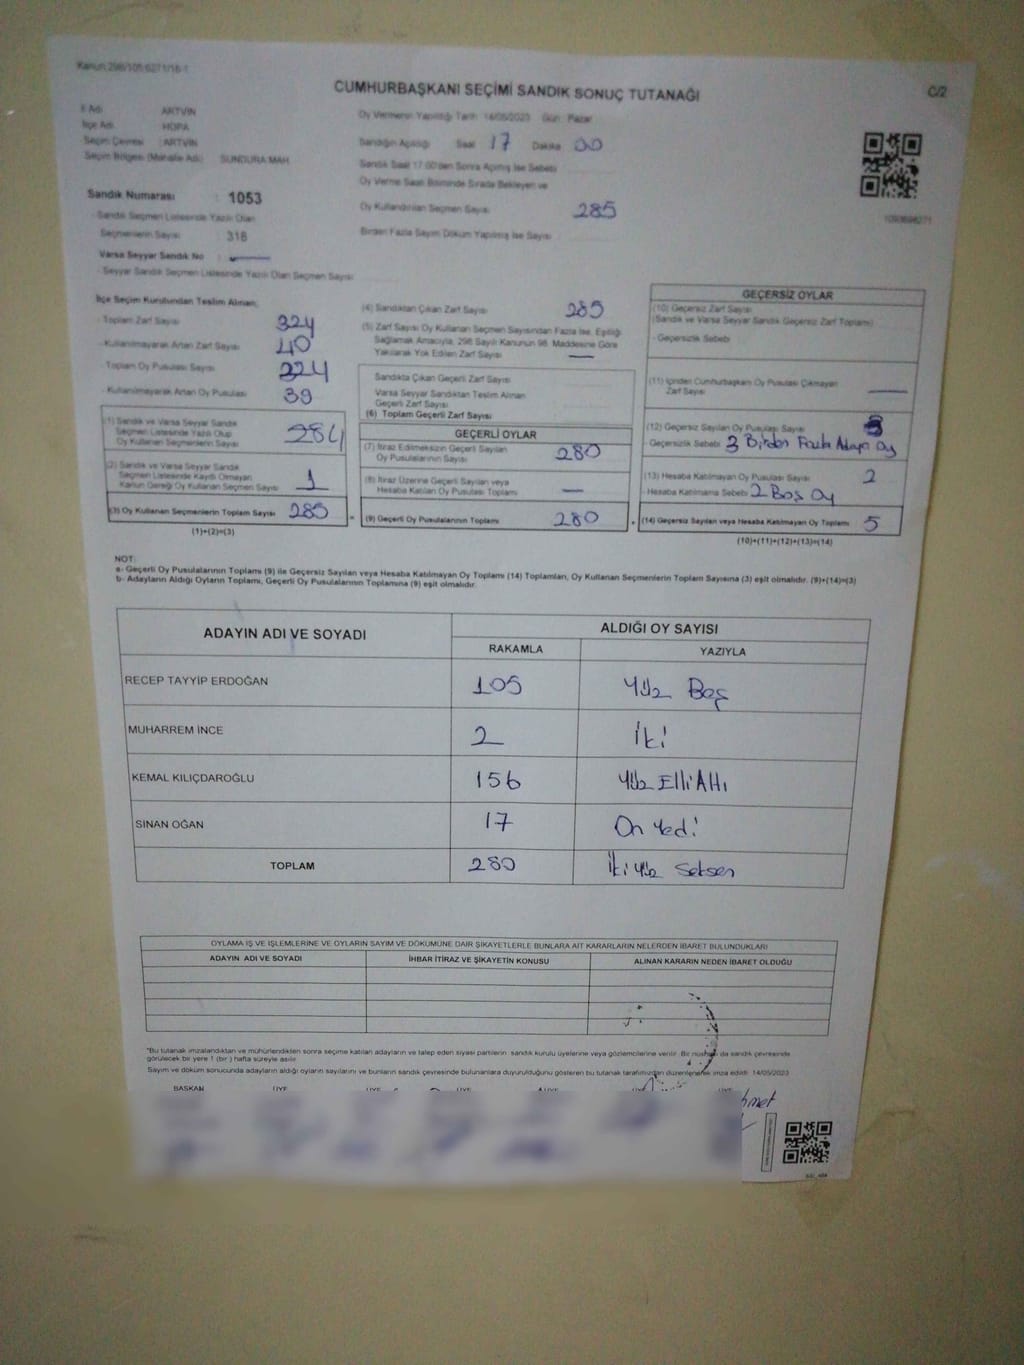 Kanun 298/105 6271/16-1
CUMHURBAŞKANI SEÇİMİ SANDIK SONUÇ TUTANAĞI
C/2
İl Adı ARTVİN
İlçe Adı HOPA
Seçim Çevresi : ARTVİN
Seçim Bölgesi (Mahalle Adı) SUNDURA MAH.
Sandık Numarası : 1053
- Sandık Seçmen Listesinde Yazılı Olan
Seçmenlerin Sayısı : 318
Varsa Seyyar Sandık No : —
- Seyyar Sandık Seçmen Listesinde Yazılı Olan Seçmen Sayısı
Oy Vermenin Yapıldığı Tarih 14/05/2023 Gün Pazar
Sandığın Açıldığı Saat 17 Dakika 00
Sandık Saat 17:00'den Sonra Açılmış İse Sebebi
Oy Verme Saati Bitiminde Sırada Bekleyen ve
Oy Kullandırılan Seçmen Sayısı 285
Birden Fazla Sayım Döküm Yapılmış İse Sayısı
1093698271
İlçe Seçim Kurulundan Teslim Alınan;
- Toplam Zarf Sayısı 324
- Kullanılmayarak Artan Zarf Sayısı 40
- Toplam Oy Pusulası Sayısı 324
- Kullanılmayarak Artan Oy Pusulası 39
(1) Sandık ve Varsa Seyyar Sandık
Seçmen Listesinde Yazılı Olup
Oy Kullanan Seçmenlerin Sayısı 284
(2) Sandık ve Varsa Seyyar Sandık
Seçmen Listesinde Kayıtlı Olmayan
Kanun Gereği Oy Kullanan Seçmen Sayısı 1
(3) Oy Kullanan Seçmenlerin Toplam Sayısı 285
(1)+(2)=(3)
(4) Sandıktan Çıkan Zarf Sayısı 285
(5) Zarf Sayısı Oy Kullanan Seçmen Sayısından Fazla İse, Eşitliği
Sağlamak Amacıyla, 298 Sayılı Kanunun 98. Maddesine Göre
Yakılarak Yok Edilen Zarf Sayısı —
Sandıkta Çıkan Geçerli Zarf Sayısı
Varsa Seyyar Sandıktan Teslim Alınan
Geçerli Zarf Sayısı
(6) Toplam Geçerli Zarf Sayısı
GEÇERLİ OYLAR
(7) İtiraz Edilmeksizin Geçerli Sayılan
Oy Pusulalarının Sayısı 280
(8) İtiraz Üzerine Geçerli Sayılan veya
Hesaba Katılan Oy Pusulası Toplamı —
(9) Geçerli Oy Pusulalarının Toplamı 280
GEÇERSİZ OYLAR
(10) Geçersiz Zarf Sayısı
(Sandık ve Varsa Seyyar Sandık Geçersiz Zarf Toplamı)
- Geçersizlik Sebebi
(11) İçinden Cumhurbaşkanı Oy Pusulası Çıkmayan
Zarf Sayısı —
(12) Geçersiz Sayılan Oy Pusulası Sayısı 3
- Geçersizlik Sebebi 3 Birden Fazla Adaya Oy
(13) Hesaba Katılmayan Oy Pusulası Sayısı 2
- Hesaba Katılmama Sebebi 2 Boş Oy
(14) Geçersiz Sayılan veya Hesaba Katılmayan Oy Toplamı 5
(10)+(11)+(12)+(13)=(14)
NOT:
a- Geçerli Oy Pusulalarının Toplamı (9) ile Geçersiz Sayılan veya Hesaba Katılmayan Oy Toplamı (14) Toplamları, Oy Kullanan Seçmenlerin Toplam Sayısına (3) eşit olmalıdır. (9)+(14)=(3)
b- Adayların Aldığı Oyların Toplamı, Geçerli Oy Pusulalarının Toplamına (9) eşit olmalıdır.
ADAYIN ADI VE SOYADI ALDIĞI OY SAYISI
RAKAMLA YAZIYLA
RECEP TAYYİP ERDOĞAN 105 Yüz Beş
MUHARREM İNCE 2 İki
KEMAL KILIÇDAROĞLU 156 Yüz Elli Altı
SİNAN OĞAN 17 On Yedi
TOPLAM 280 İki Yüz Seksen
OYLAMA İŞ VE İŞLEMLERİNE VE OYLARIN SAYIM VE DÖKÜMÜNE DAİR ŞİKAYETLERLE BUNLARA AİT KARARLARIN NELERDEN İBARET BULUNDUKLARI
ADAYIN ADI VE SOYADI İHBAR İTİRAZ VE ŞİKAYETİN KONUSU ALINAN KARARIN NEDEN İBARET OLDUĞU
*Bu tutanak imzalandıktan ve mühürlendikten sonra seçime katılan adayların ve talep eden siyasi partilerin sandık kurulu üyelerine veya gözlemcilerine verilir. Bir nushası da sandık çevresinde
görülecek bir yere 1 (bir) hafta süreyle asılır.
Sayım ve döküm sonucunda adayların aldığı oyların sayılarını ve bunların sandık çevresinde bulunanlara duyurulduğunu gösteren bu tutanak tarafımızdan düzenlenerek imza edildi. 14/05/2023
BAŞKAN ÜYE ÜYE ÜYE ÜYE ÜYE ÜYE